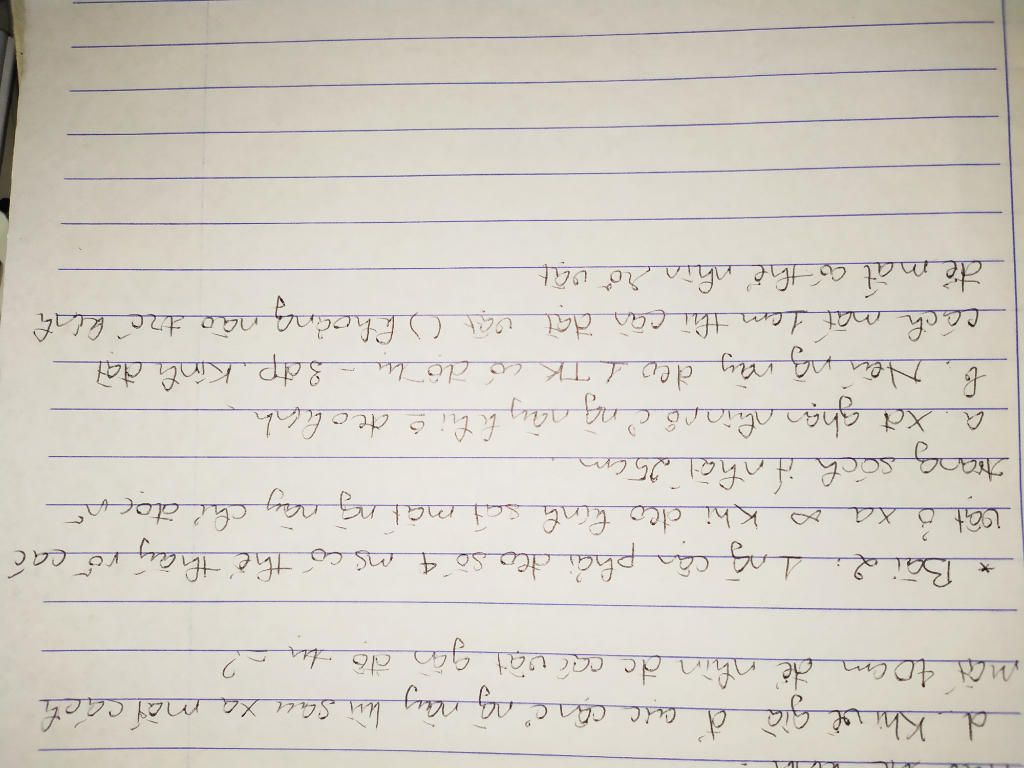 d. Khi về già đ' cực cận c' ng này lùi sau xa mắt cách
mắt 40cm để nhìn đc các vật gần độ tụ = ?
* Bài 2: 1 ng cận phải đeo số 4 ms có thể thấy rõ các
vật ở xa ∞ Khi đeo kính sát mắt ng này chỉ đọc
trang sách ít nhất 25cm.
a. Xđ ghạn nhìn rõ c' ng này khi ō đeo kính
b. Nếu ng này đeo 1 TK có độ tụ - 3dp. Kính đặt
cách mắt 1cm thì cần đặt vật () khoảng nào trc kính
để mắt có thể nhìn rõ vật